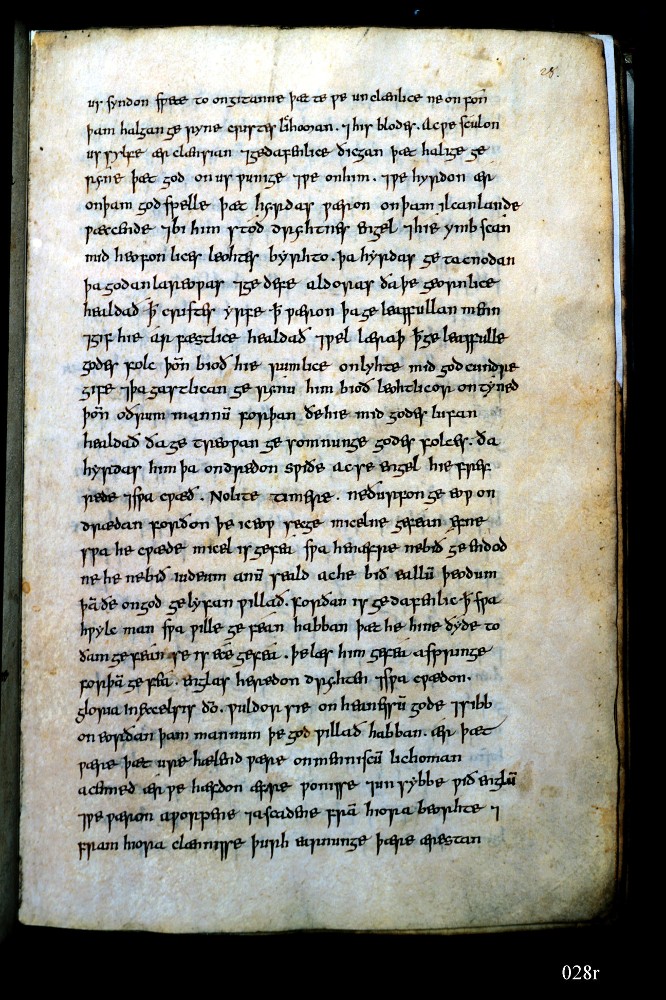 28.
us syndon spræc to ongitanne þæt te ƿe unclænlice ne onfón
þam halgan ge ryne cristes lichoman. ⁊ his blodes. ac ƿe sculon
us sylfe ær clænsian ⁊ gedafenlice ðicgan þæt halige ge
ryne þæt god on us ƿunige ⁊ ƿe on him. ⁊ ƿe hyrdon ær
on þam god spelle þæt hyrdas ƿæron on þam ilcan lande
ƿæccende ⁊ bi him stod dryhtnes engel ⁊ hie ymb scan
mid heofon lices leohtes byrhto. þa hyrdas ge tacnodon
þa godan lareoƿas ⁊ ge defe aldoras ða þe geornlice
healdað ꝥ cristes yrfe ꝥ ƿæron þa ge leaffullan men
⁊ gif hie ær fæstlice healdað ⁊ ƿel læraþ ꝥ ge leaffulle
godes folc þon̄ bioð hie rumlice onlyhte mid godcundre
gife ⁊ þa gastlican ge rynu him bioð leohtlicor ontyned
þon̄ oðrum mannū forþan ðe hie mid godes lufan
healdað ða ge treoƿan ge somnunge godes folces. ða
hyrdas him þa ondredon sƿiðe ac se engel hie fref
rede ⁊ sƿa cƿæð. Nolite timere. ne ðurfon ge eoƿ on
drædan forðon þe ic eoƿ secge micelne gefean efne
sƿa he cƿæde micel is gefea sƿa he næfre ne bið ge endod
ne he ne bið iudeum anū seald ac he bið eallū þeodum
þā ðe on god gelyfan ƿillað. forðan is gedafenlic ꝥ sƿa
hƿylc man sƿa ƿille ge fean habban þæt he hine dyde to
ðam ge fean se is ece gefea. þe læs him gefea asprunge
forþā ge fea. englas heredon dryhten ⁊ sƿa cƿædon.
gloria in excelsis dō. ƿuldor sie on heannessū gode ⁊ sibb
on eorðan þam mannum þe god ƿillað habban. ær þæt
ƿære þæt ure hælend ƿære on menniscū lichoman
acenned ær ƿe hæfdon æfre ƿonisse ⁊ un sybbe ƿið englū
⁊ ƿe ƿæron aƿorpene ⁊ ascadene frā hiora beorhte ⁊
fram hiora clænnesse þurh scyninge þære ærestan
028r